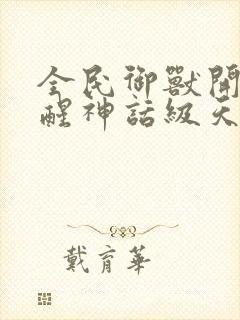 全民御獸開
醒神話級天
戴育華